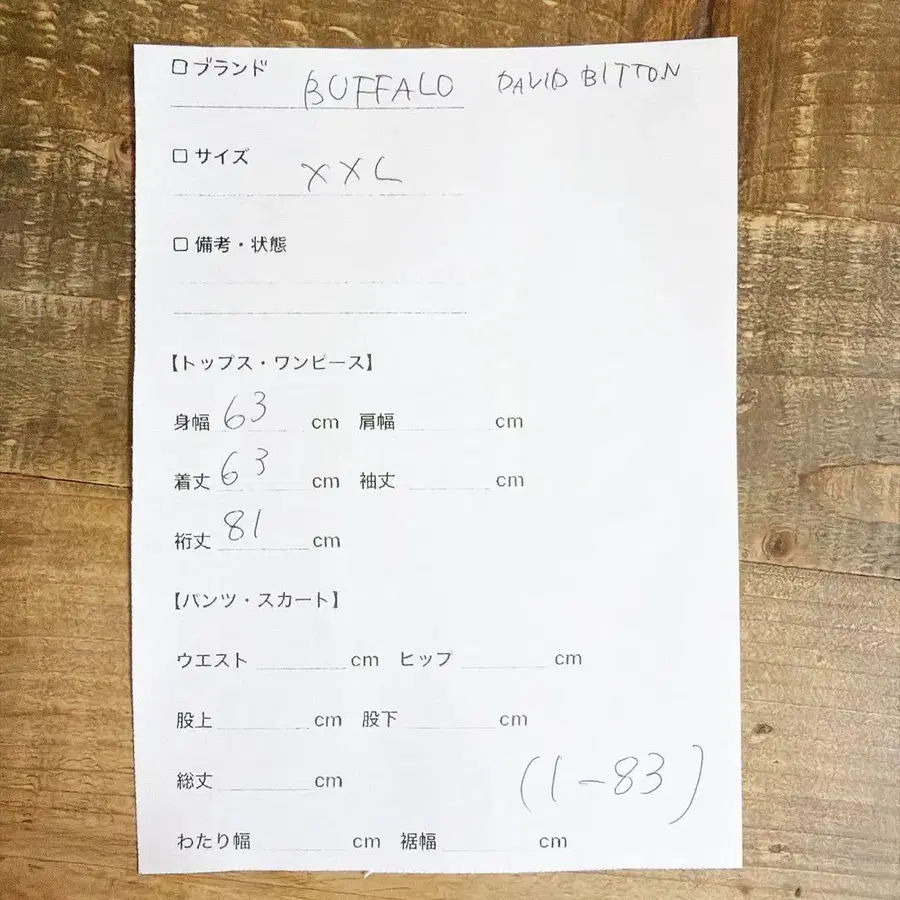 □ ブランド BUFFALO DAVID BITTON
□ サイズ XXL
□ 備考・状態
【トップス・ワンピース】
身幅 63 cm 肩幅 cm
着丈 63 cm 袖丈 cm
裄丈 81 cm
【パンツ・スカート】
ウエスト cm ヒップ cm
股上 cm 股下 cm
総丈 cm
(1-83)
わたり幅 cm 裾幅 cm